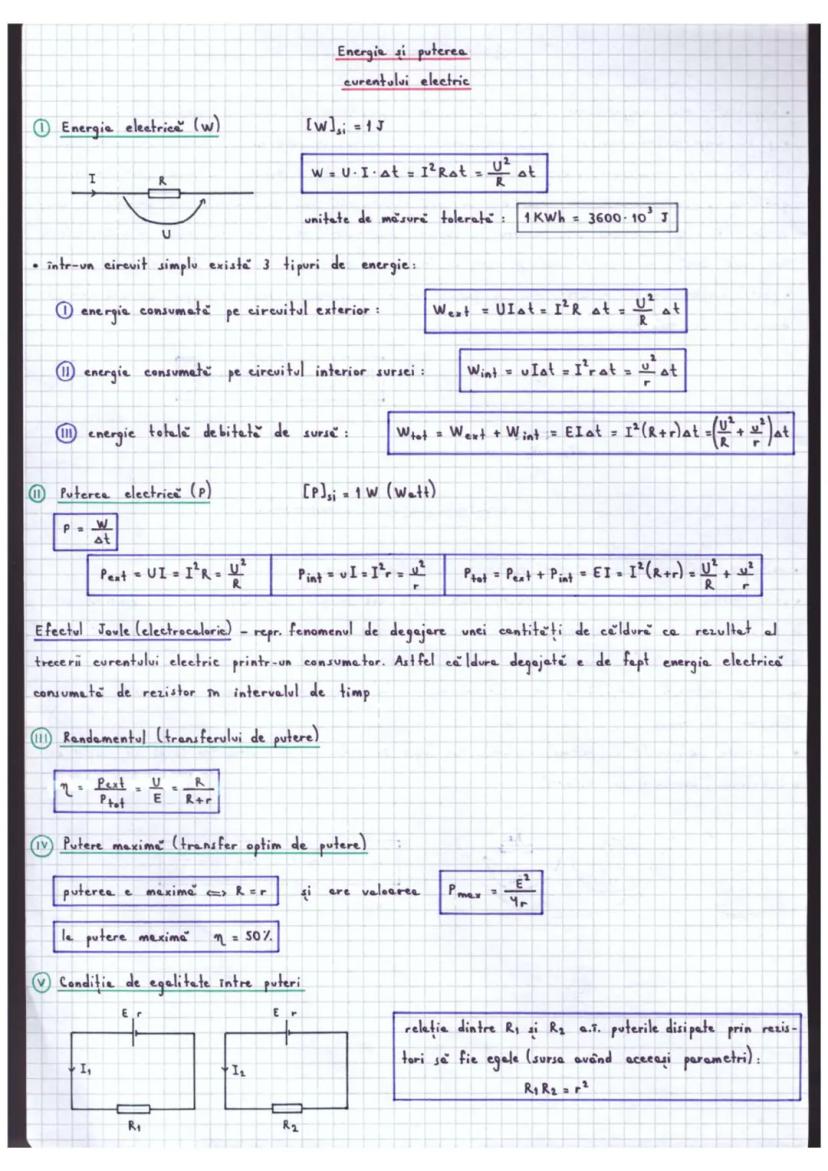 Energia și puterea
curentului electric
I Energia electrică (W) [W]si = 1 J
W = U·I·Δt = I²RΔt = U²/R Δt
I R
U
unitate de măsură tolerată : 1 KWh = 3600·10³ J
• într-un circuit simplu există 3 tipuri de energie:
I energia consumată pe circuitul exterior : Wext = UIΔt = I²R Δt = U²/R Δt
II energie consumată pe circuitul interior sursei : Wint = uIΔt = I²rΔt = u²/r Δt
III energie totală debitată de sursă : Wtot = Wext + Wint = EIΔt = I²(R+r)Δt = (U²/R + u²/r)Δt
II Puterea electrică (P) [P]si = 1 W (Watt)
P = W/Δt
Pext = UI = I²R = U²/R Pint = uI = I²r = u²/r Ptot = Pext + Pint = EI = I²(R+r) = U²/R + u²/r
Efectul Joule (electrocaloric) – repr. fenomenul de degajare unei cantități de căldură ca rezultat al
trecerii curentului electric printr-un consumator. Astfel căldura degajată e de fapt energia electrică
consumată de rezistor în intervalul de timp
III Randamentul (transferului de putere)
η = Pext/Ptot = U/E = R/R+r
IV Putere maximă (transfer optim de putere)
puterea e maximă <=> R = r și are valoarea Pmax = E²/4r
la putere maximă η = 50%
V Condiția de egalitate între puteri
E r E r
I₁ I₂
R₁ R₂
relația dintre R₁ și R₂ a.î. puterile disipate prin rezis-
tori să fie egale (sursa având aceeași parametri):
R₁R₂ = r²